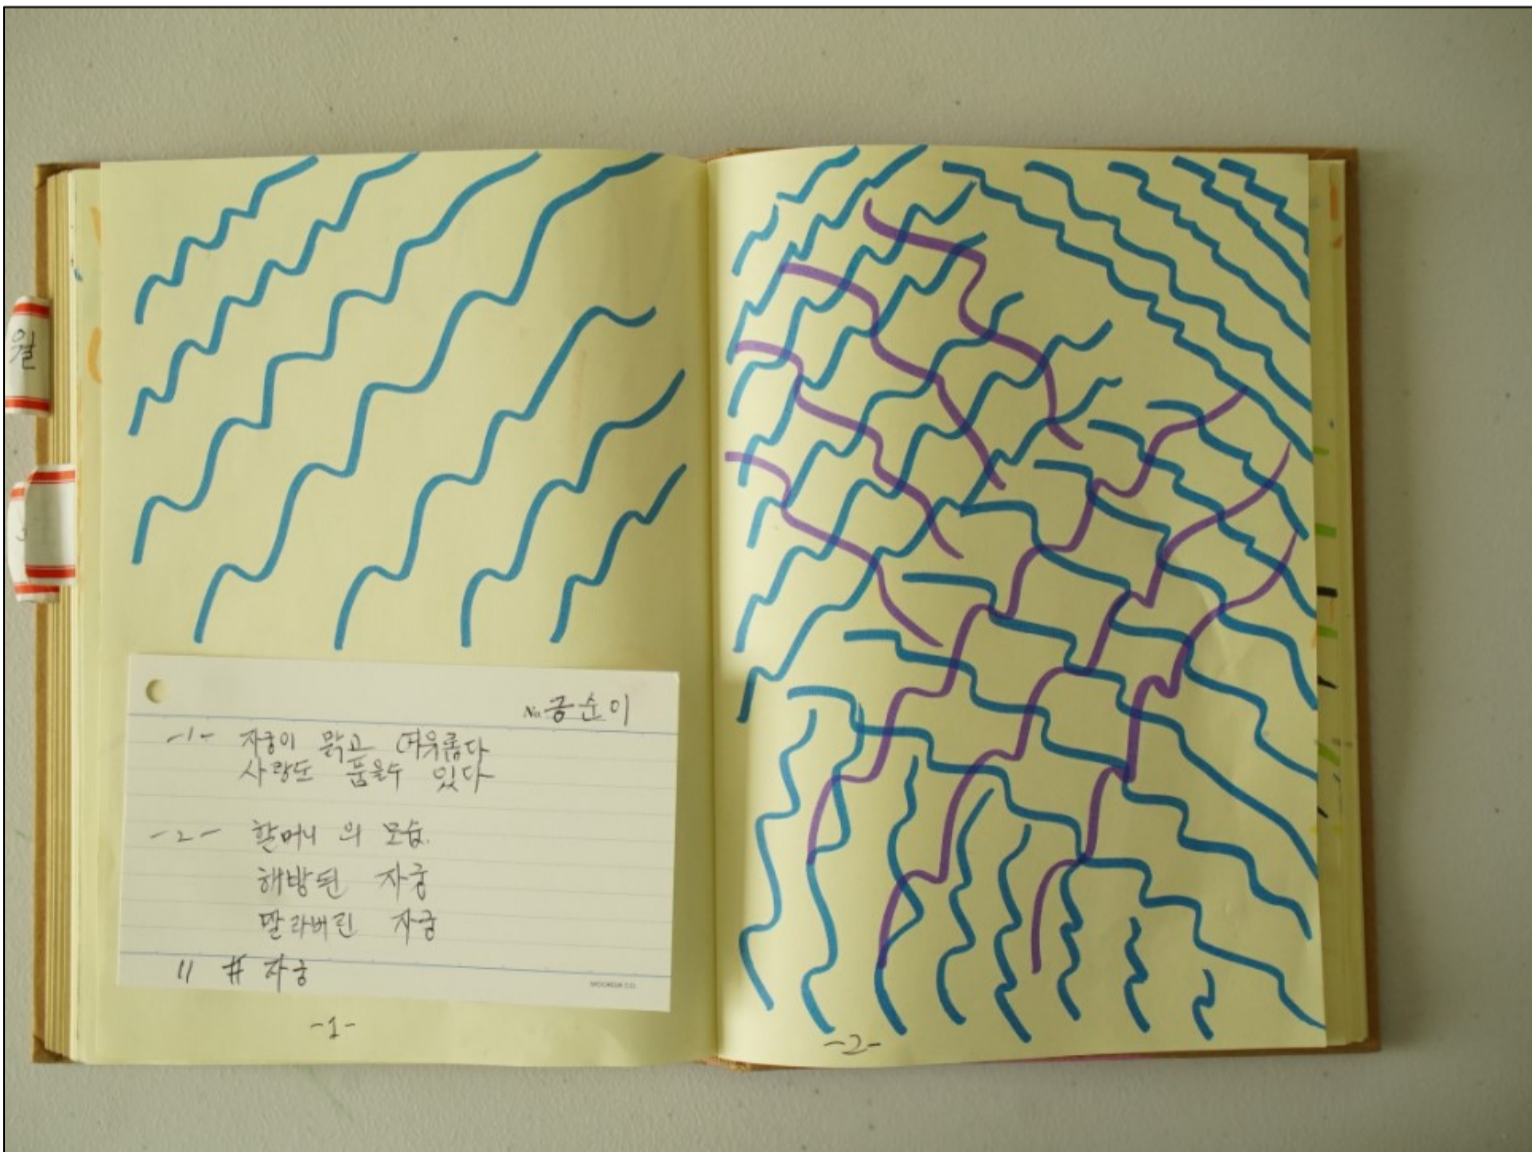 월
No. 공순이
-1- 자궁이 맑고 여유롭다
사랑도 품을수 있다
-2- 할머니의 모습.
해방된 자궁
말라버린 자궁
11 # 자궁
MOORIM CO.
-1-
-2-